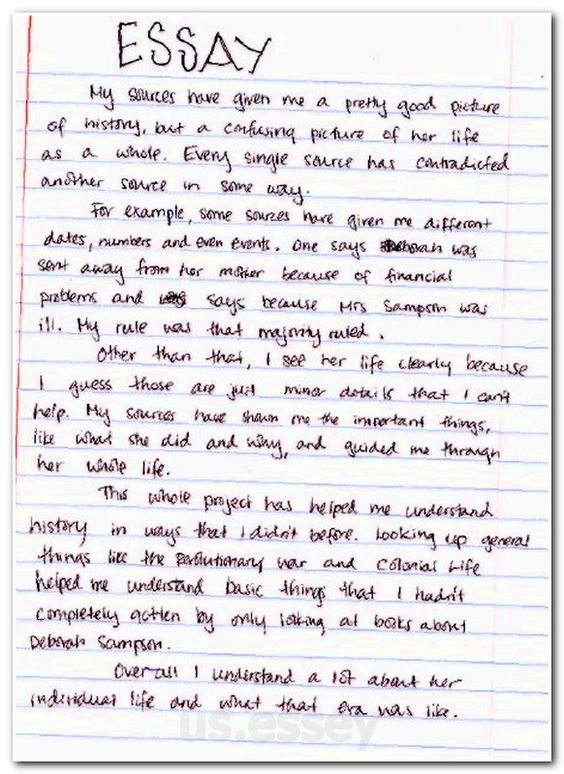 ESSAY
My sources have given me a pretty good picture
of history, but a confusing picture of her life
as a whole. Every single source has contradicted
another source in some way.
For example, some sources have given me different
dates, numbers and even events. One says Deborah was
sent away from her mother because of financial
problems and says because Mrs Sampson was
ill. My rule was that majority ruled.
Other than that, I see her life clearly because
I guess those are just minor details that I can't
help. My sources have shown me the important things,
like what she did and why, and guided me through
her whole life.
This whole project has helped me understand
history in ways that I didn't before. Looking up general
things like the Revolutionary war and Colonial Life
helped me understand basic things that I hadn't
completely gotten by only looking at books about
Deborah Sampson.
Over all I understand a lot about her
individual life and what that era was like.
us.essey